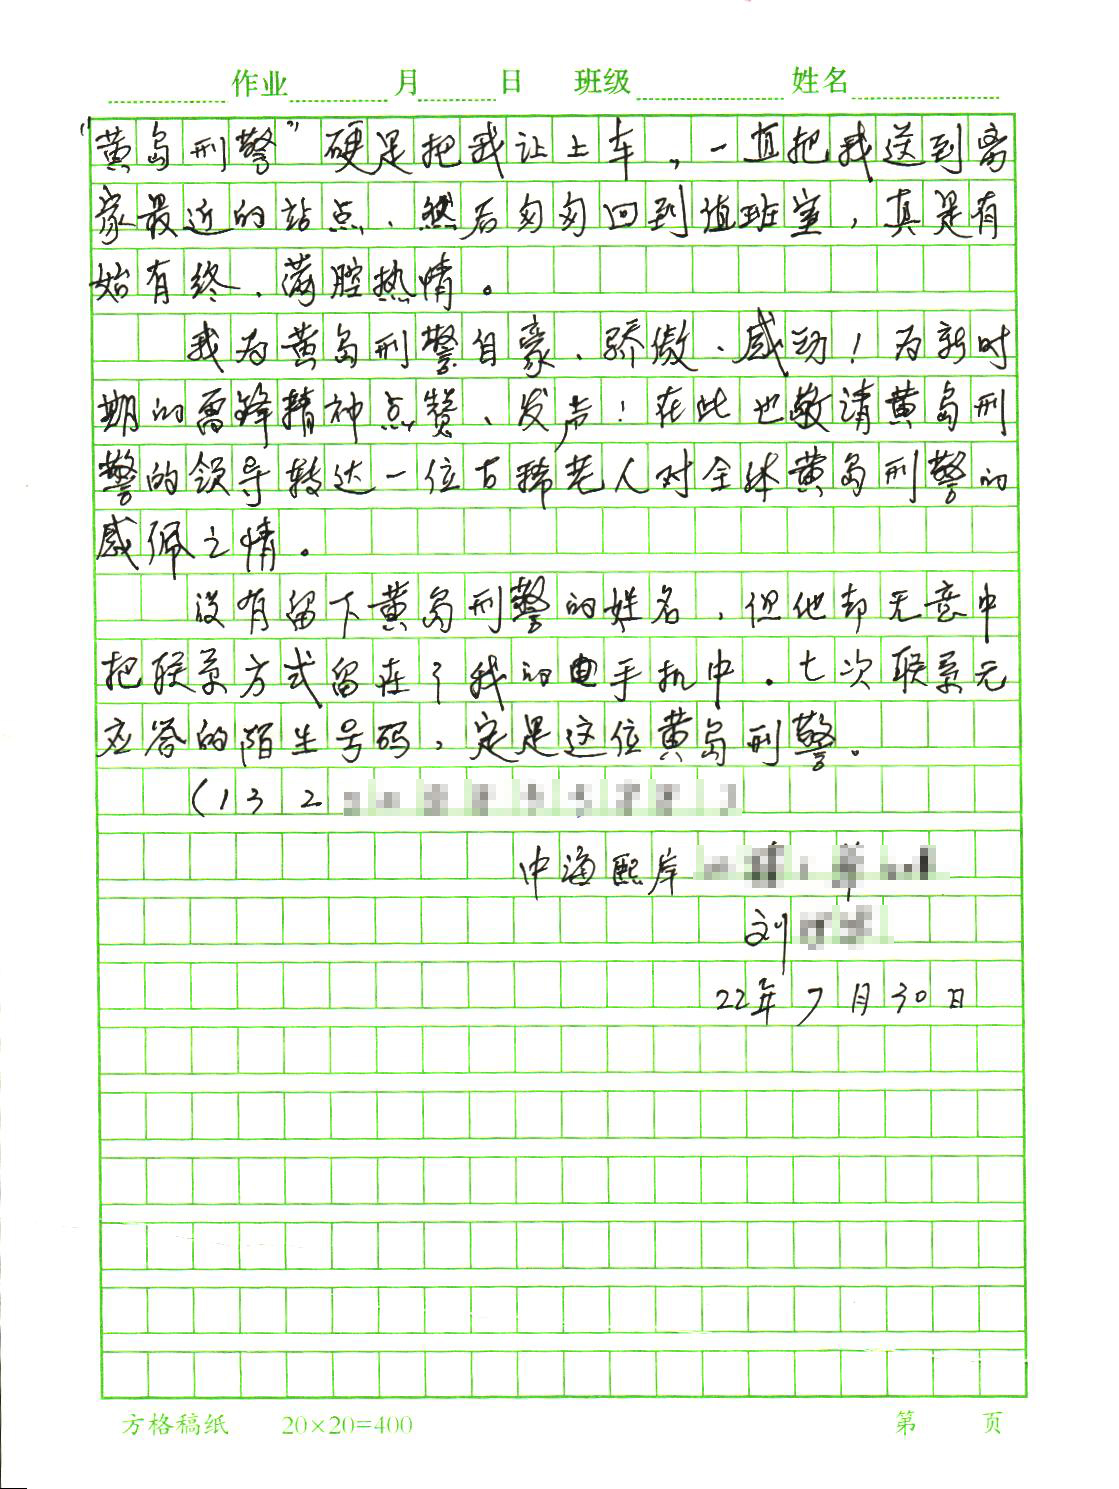 作业 月 日 班级 姓名
“黄岛刑警”硬是把我让上车，一直把我送到离
家最近的站点、然后匆匆回到值班室，真是有
始有终、满腔热情。
我为黄岛刑警自豪、骄傲、感动！为新时
期的雷锋精神点赞、发声！在此也敬请黄岛刑
警的领导转达一位古稀老人对全体黄岛刑警的
感佩之情。
没有留下黄岛刑警的姓名，但他却无意中
把联系方式留在了我的手机中．七次联系无
应答的陌生号码，定是这位黄岛刑警。
(132
中海熙岸
刘
22年7月30日
方格稿纸 20×20=400 第 页